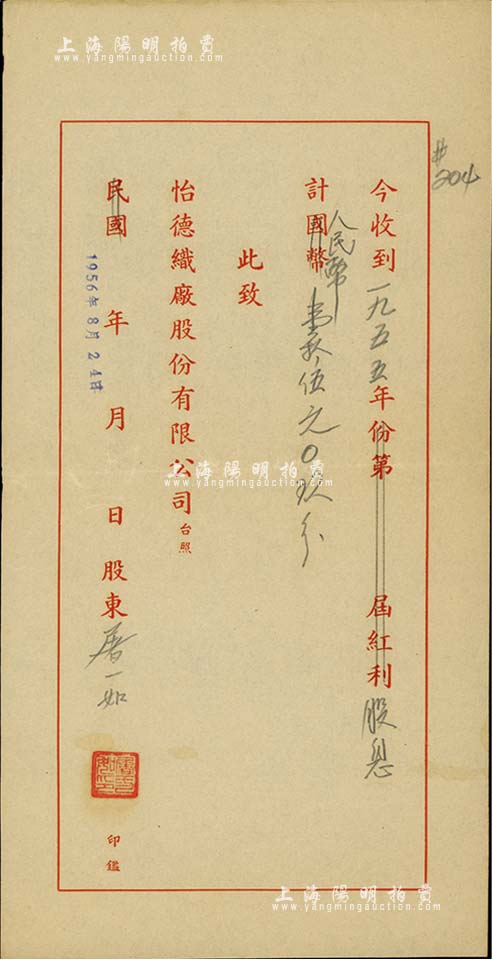 上海陽明拍賣
www.yangmingauction.com
#204
今收到一九五五年份第 屆紅利股息
計國幣人民幣 伍元0玖分
此致
怡德織廠股份有限公司台照
上海陽明拍賣
www.yangmingauction.com
民國 年 月 日 股東屠一如
1956年8月24日
印鑑
上海陽明拍賣
www.yangmingauction.com